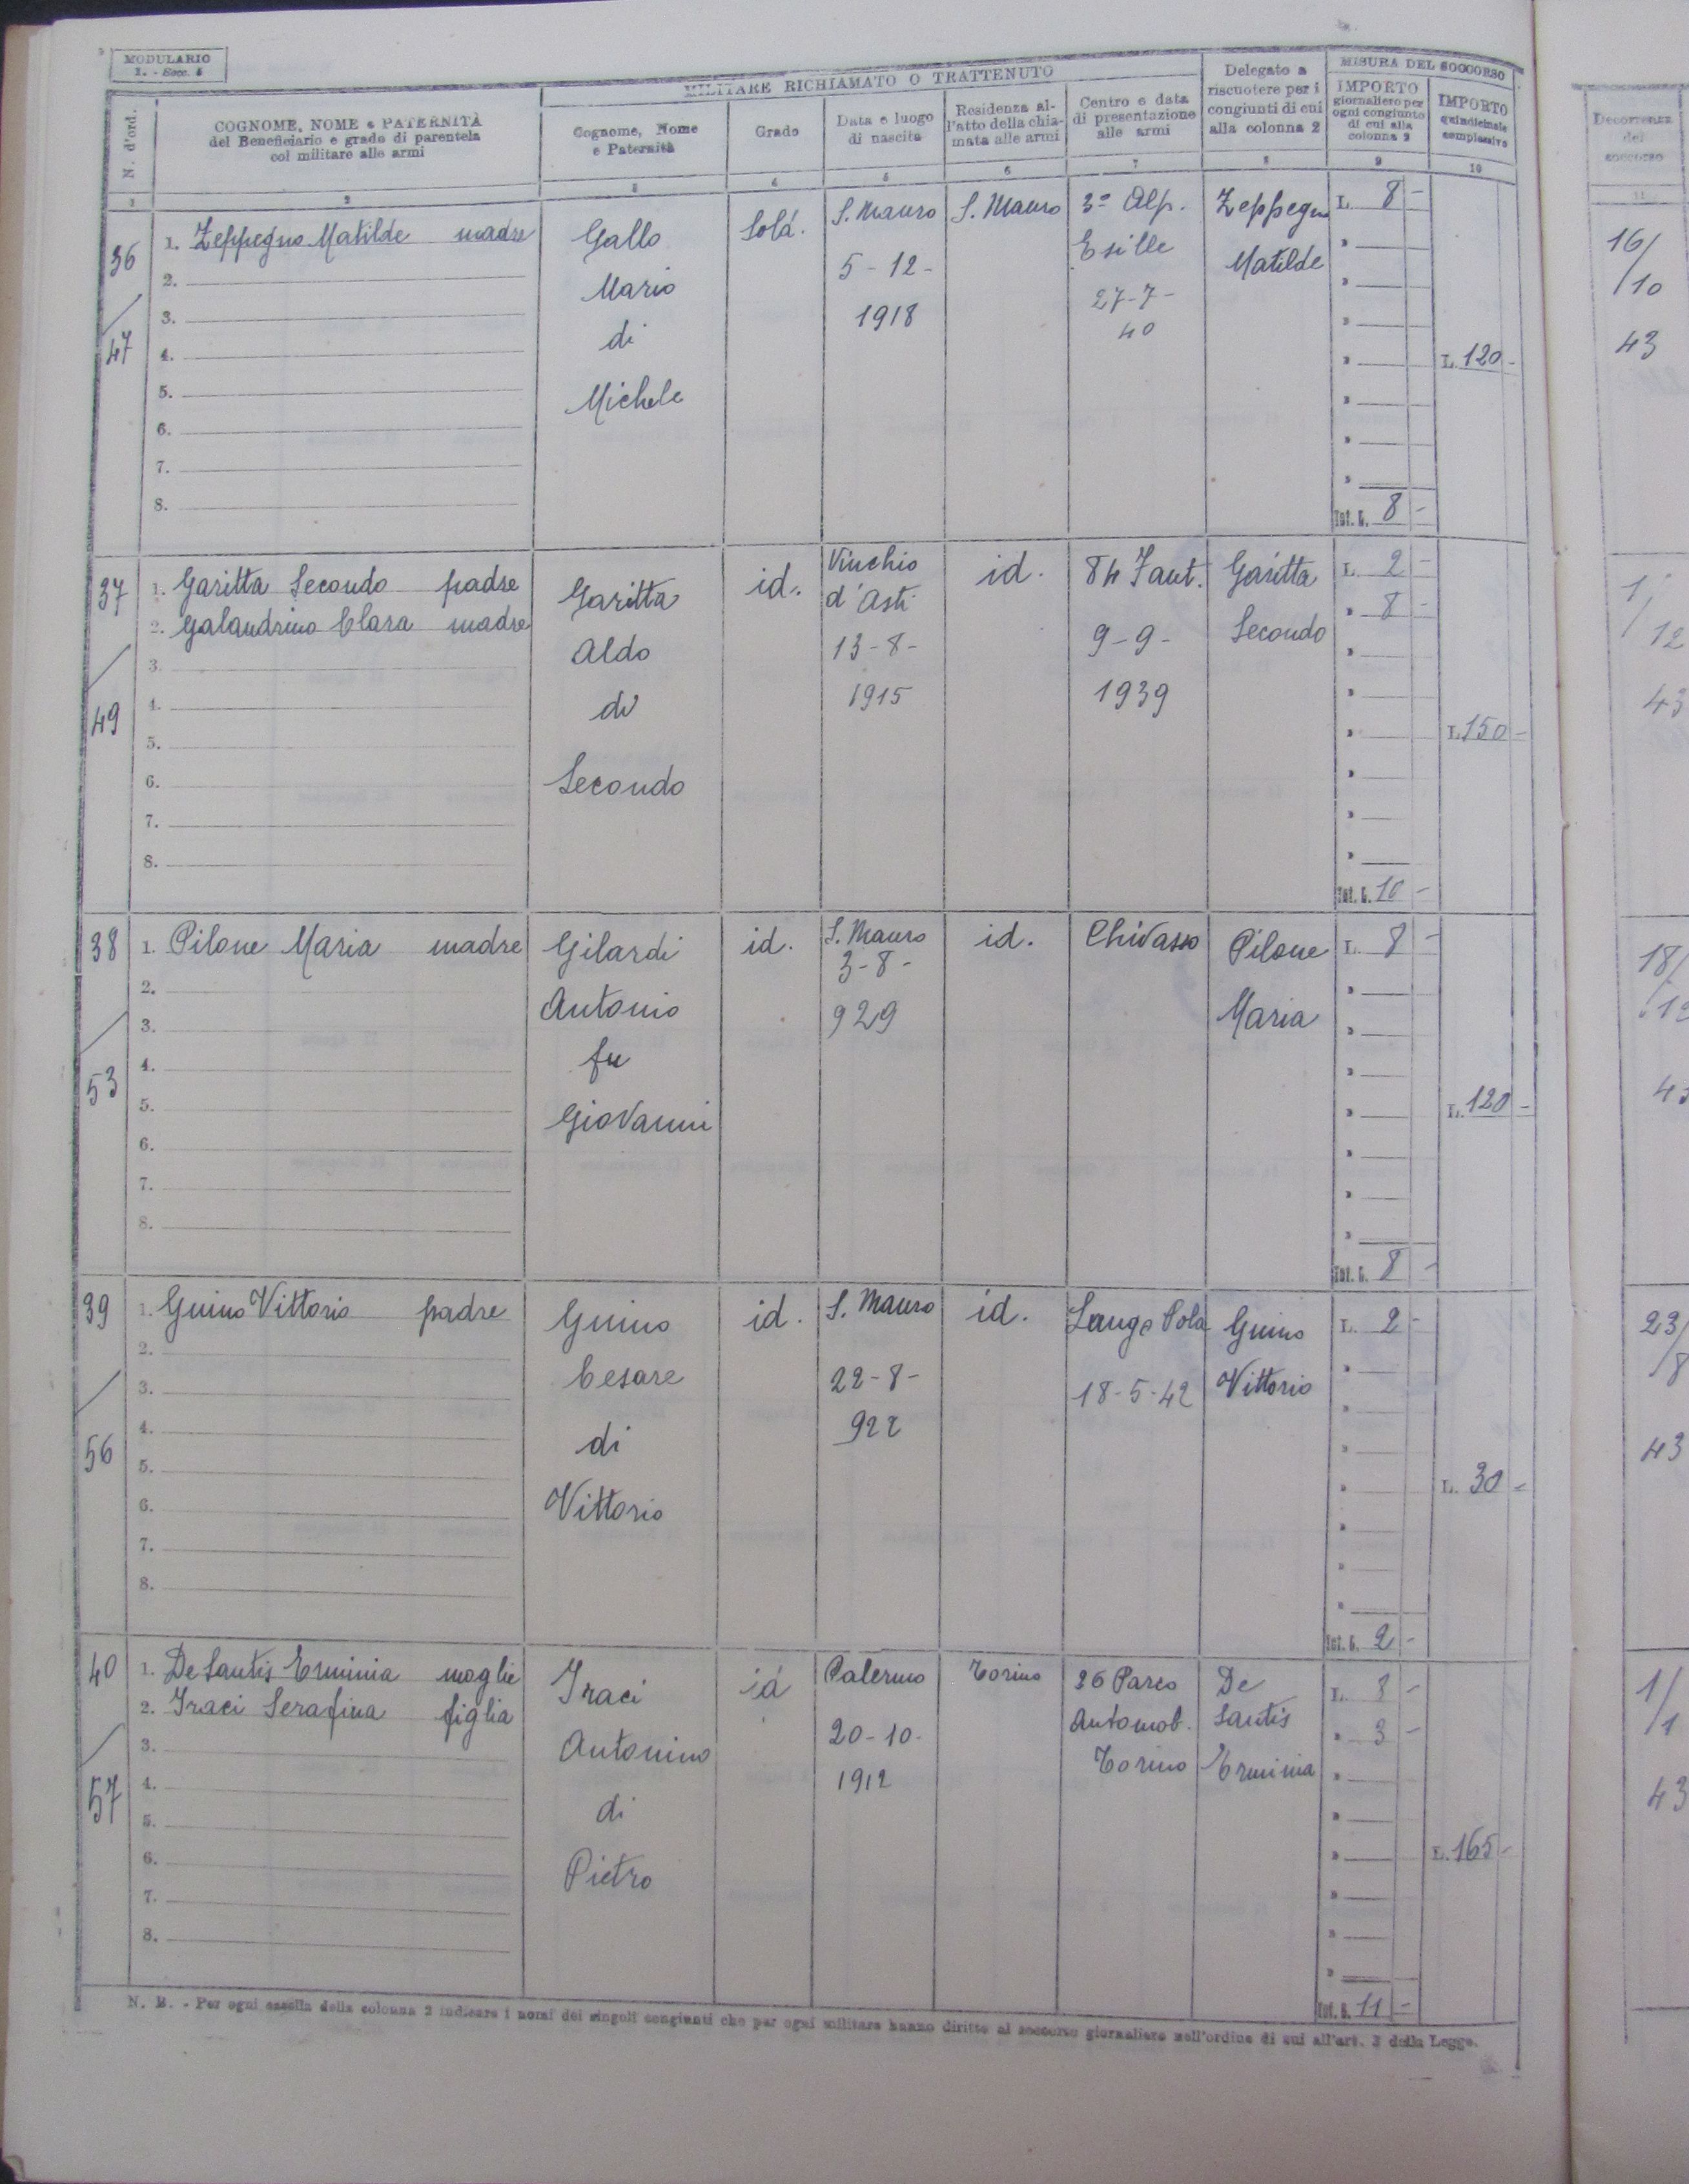 MODULARIO
I. - Socc. 4
MILITARE RICHIAMATO O TRATTENUTO
MISURA DEL SOCCORSO
N. d'ord.
COGNOME, NOME e PATERNITÀ
del Beneficiario e grado di parentela
col militare alle armi
Cognome, Nome
e Paternità
Grado
Data e luogo
di nascita
Residenza al-
l'atto della chia-
mata alle armi
Centro e data
di presentazione
alle armi
Delegato a
riscuotere per i
congiunti di cui
alla colonna 2
IMPORTO
giornaliero per
ogni congiunto
di cui alla
colonna 2
IMPORTO
quindicinale
complessivo
Decorrenza
del
soccorso
1 2 3 4 5 6 7 8 9 10 11
36 / 47
1. Zeppegno Matilde madre
2.
3.
4.
5.
6.
7.
8.
Gallo
Mario
di
Michele
Sold.
S. Mauro
5-12-
1918
S. Mauro
3º Alp.
Esille
27-7-
40
Zeppegno
Matilde
L. 8 -
Tot. L. 8 -
L. 120 -
16/
/10
43
37 / 49
1. Garitta Secondo padre
2. Galandrino Clara madre
3.
4.
5.
6.
7.
8.
Garitta
Aldo
di
Secondo
id.
Vinchio
d'Asti
13-8-
1915
id.
84 Fant.
9-9-
1939
Garitta
Secondo
L. 2 -
» 8 -
Tot. L. 10 -
L. 150 -
1/
/12
43
38 / 53
1. Pilone Maria madre
2.
3.
4.
5.
6.
7.
8.
Gilardi
Antonio
fu
Giovanni
id.
S. Mauro
3-8-
929
id.
Chivasso
Pilone
Maria
L. 8 -
Tot. L. 8 -
L. 120 -
18/
39 / 56
1. Guino Vittorio padre
2.
3.
4.
5.
6.
7.
8.
Guino
Cesare
di
Vittorio
id.
S. Mauro
22-8-
922
id.
Lango Pola
18-5-42
Guino
Vittorio
L. 2 -
Tot. L. 2 -
L. 30 -
23/
/8
43
40 / 57
1. De Santis Erminia moglie
2. Iraci Serafina figlia
3.
4.
5.
6.
7.
8.
Iraci
Antonino
di
Pietro
id
Palermo
20-10-
1912
Torino
26 Parco
Automob.
Torino
De
Santis
Erminia
L. 8 -
» 3 -
Tot. L. 11 -
L. 165 -
1/
/1
43
N. B. - Per ogni casella della colonna 2 indicare i nomi dei singoli congiunti che per ogni militare hanno diritto al soccorso giornaliero nell'ordine di cui all'art. 3 della Legge.